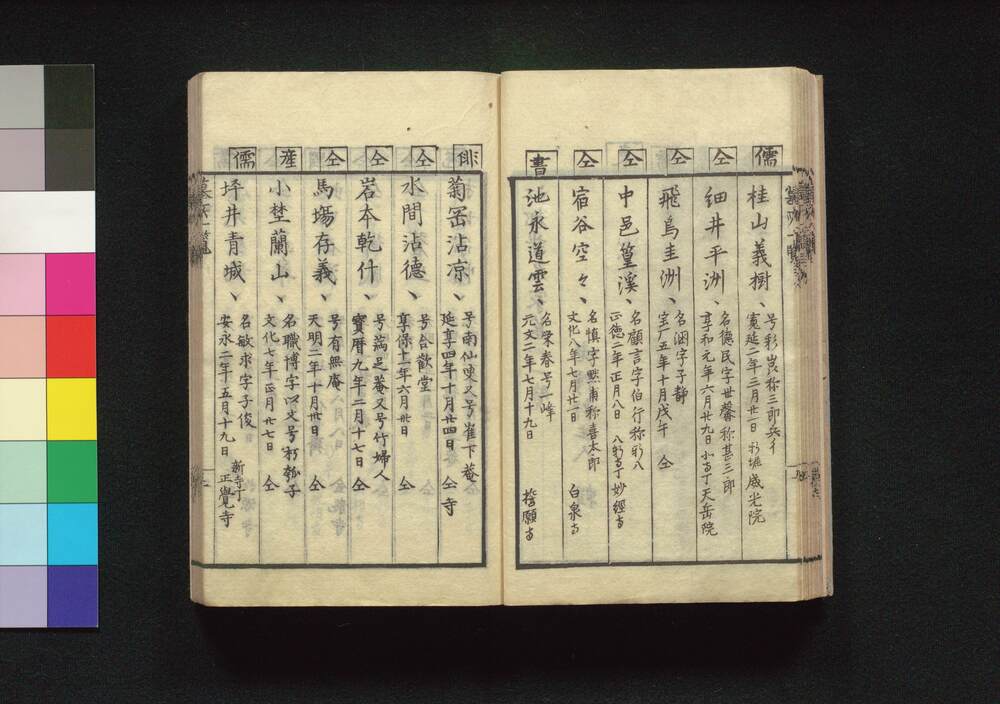 儒 桂山義樹、
号彩岩称三郎兵衛
寛延二年三月廿日 新堀威光院
仝 細井平洲、
名徳民字世馨称甚三郎
享和元年六月廿九日 小寺丁天岳院
仝 飛鳥圭洲、
名洇字子静
宝厂五年十月戊午 仝
仝 中邑篁溪、
名顧言字伯行称新八
正徳二年正月八日 八新寺丁妙經寺
仝 宿谷空々、
名慎字黙甫称喜太郎
文化八年七月廿一日 白泉寺
書 池永道雲、
名栄春号一峰
元文二年七月十九日 誓願寺
俳 菊岡沾凉、
号南仙叟又号崔下菴
延享四年十月廿四日 仝寺
仝 水間沾徳、
号合歡堂
享保十一年六月卅日
仝 岩本乾什、
号端足菴又号竹婦人
寶暦九年二月十七日 仝
仝 馬場存義、
号有無庵
天明二年十月卅日 仝
産 小埜蘭山、
名職博字以文号朽匏子
文化七年正月廿七日 仝
儒 坪井青城、
名敏求字子俊
安永二年五月十九日 新寺丁正覺寺